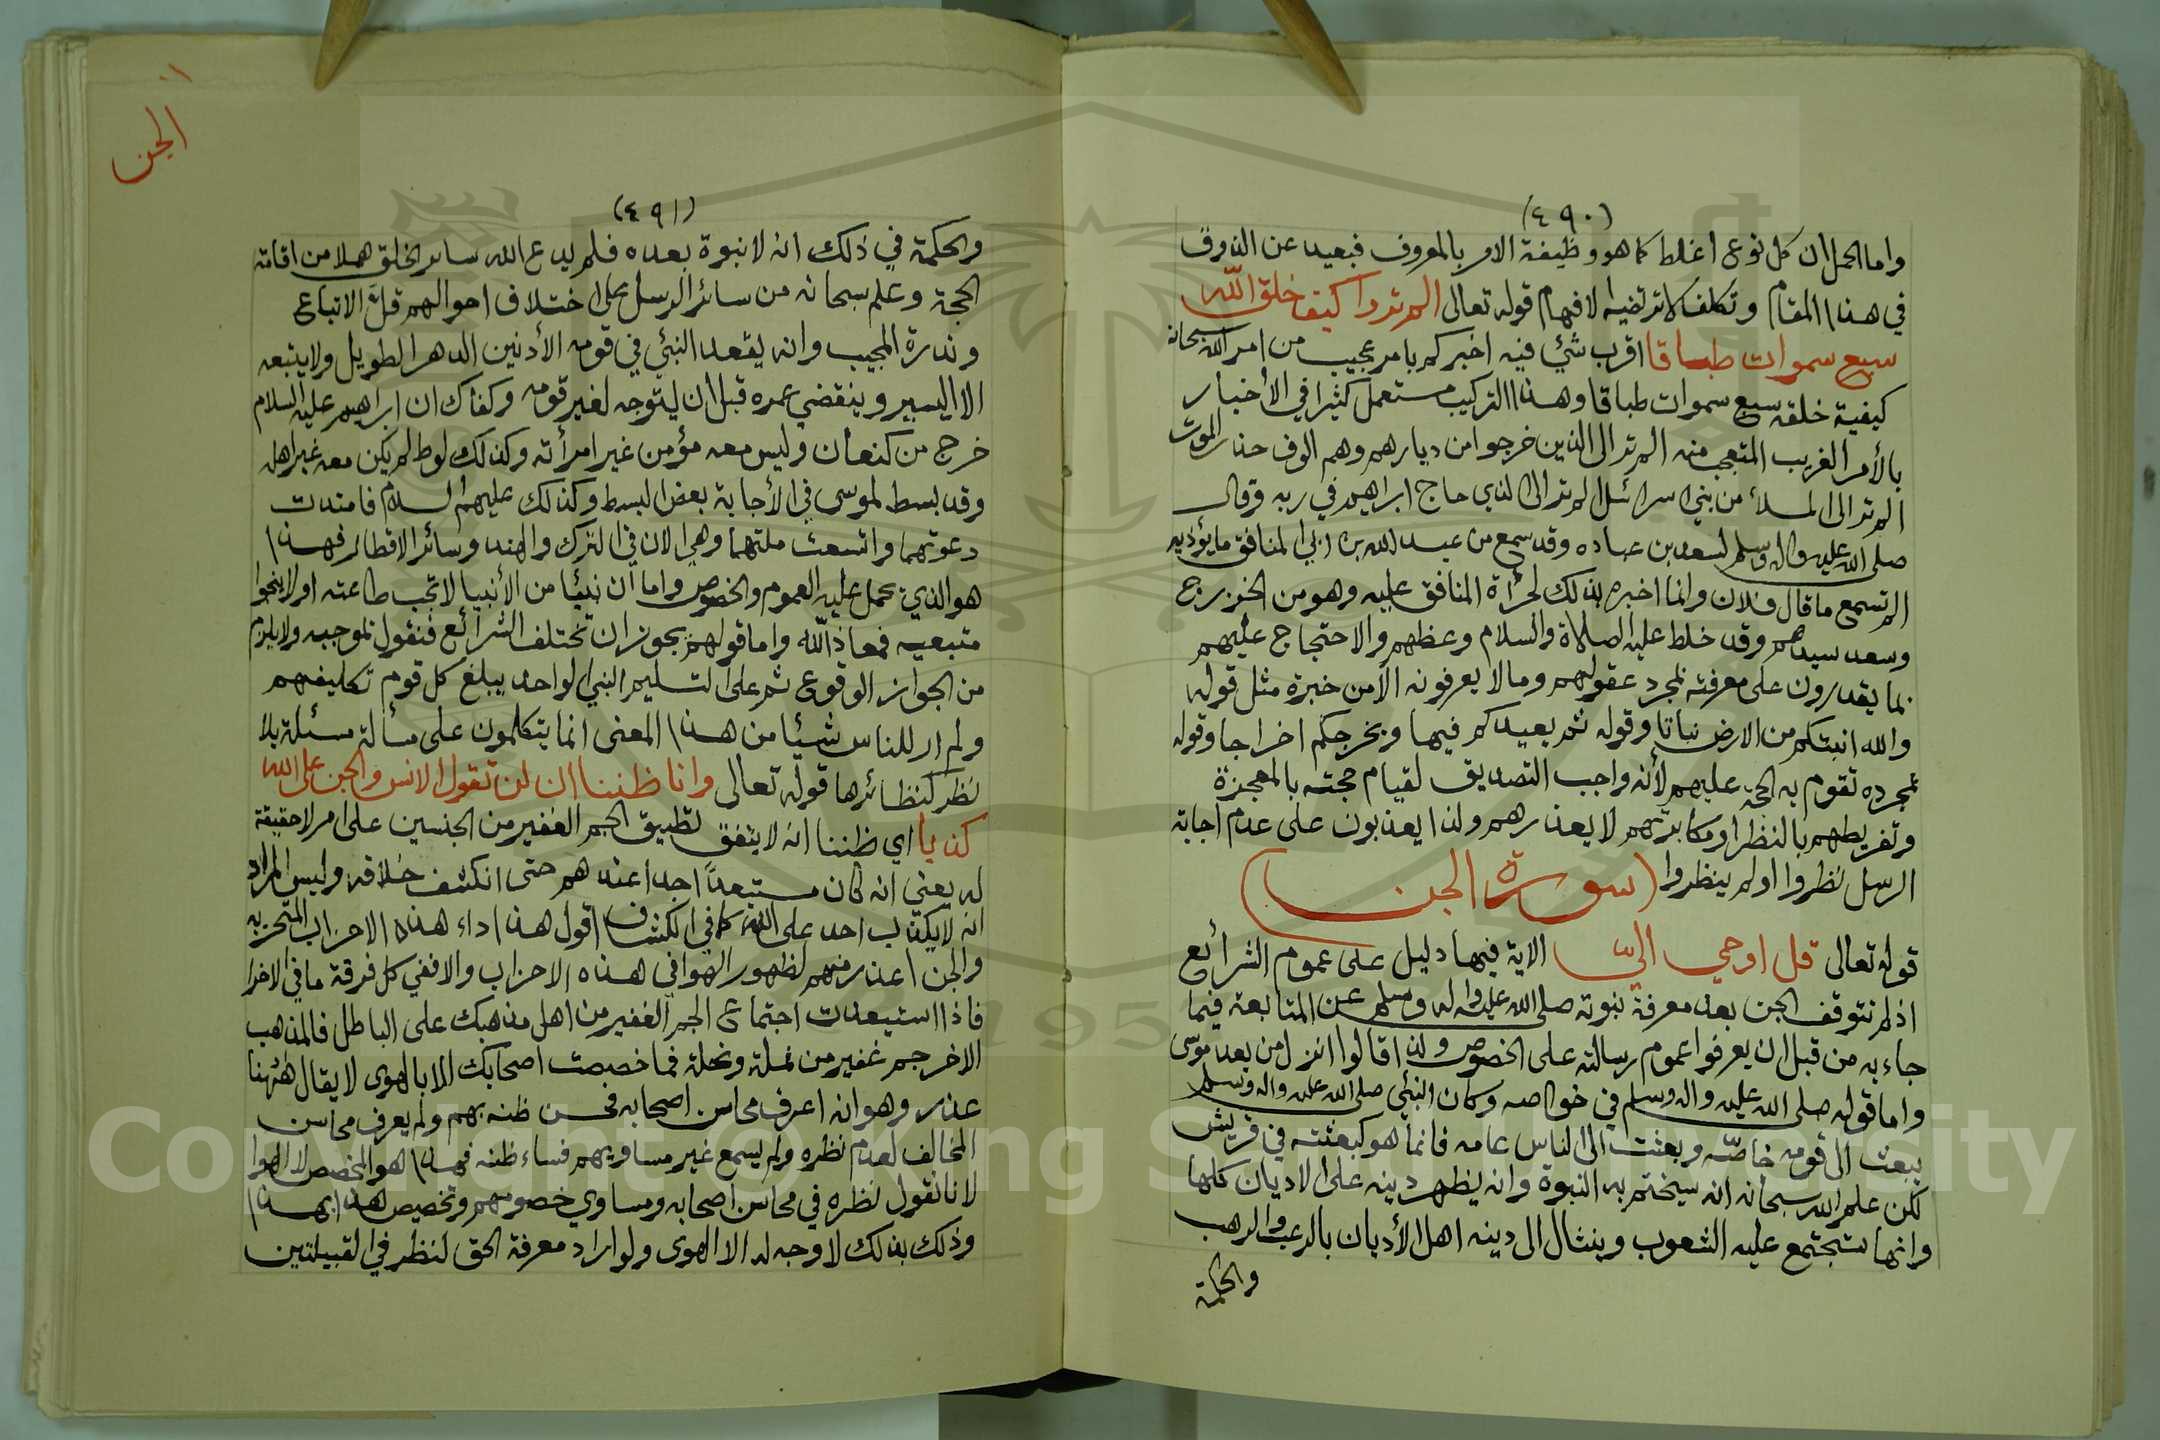 (٤٩٠)
واما الحمل ان كل نوع اغلط كما هو وظيفة الامر بالمعروف فبعيد عن الذوق
في هذا المقام وتكلف لا ترتضيه لافهام قوله تعالى الم تروا كيف خلق الله
سبع سموات طباقا اقرب شئ فيه اخبركم بامر عجيب من امر الله سبحانه
كيفية خلقه سبع سموات طباقا وهذا التركيب مستعمل كثيرا في الأخبار
بالأمر الغريب المتعجب منه الم تر الى الذين خرجوا من ديارهم وهم الوف حذر الموت
الم تر الى الملأ من بني اسرائل الم تر الى الذي حاج ابراهيم في ربه وقال
صلى الله عليه واله وسلم لسعد بن عباده وقد سمع من عبد الله بن ابي المنافق ما يؤذيه
الم تسمع ما قال فلان وانما اخبره بذلك لجرأة المنافق عليه وهو من الخزرج
وسعد سيدهم وقد خلط عليه الصلاة والسلام وعظهم والاحتجاج عليهم
بما يقدرون على معرفته بمجرد عقولهم وما لا يعرفونه الا من خبره مثل قوله
والله انبتكم من الارض نباتا وقوله ثم يعيدكم فيها ويخرجكم اخراجا وقوله
بمجرده تقوم به الحجة عليهم لأنه واجب التصديق لقيام حجته بالمعجزة
وتفريطهم بالنظر او مكابرتهم لا يعذرهم ولذا يعذبون على عدم اجابة
الرسل نظروا او لم ينظروا (سورة الجن)
قوله تعالى قل اوحي اليّ الاية فيها دليل على عموم الشرائع
اذ لم تتوقف الجن بعد معرفة نبوته صلى الله عليه واله وسلم عن المتابعة فيما
جاء به من قبل ان يعرفوا عموم رسالته على الخصوص ولذا قالوا انزل من بعد موسى
واما قوله صلى الله عليه واله وسلم في خواصه وكان النبي صلى الله عليه واله وسلم
يبعث الى قومه خاصّه وبعثت الى الناس عامه فانما هو كبعثته في قريش
لكن علم الله سبحانه انه سيختم به النبوة وانه يظهر دينه على الاديان كلها
وانها ستجتمع عليه الشعوب وينثال الى دينه اهل الأديان بالرغب والرهب
والحكمة
الجن
(٤٩١)
والحكمة في ذلك انه لا نبوة بعده فلم يدع الله سائر الخلق هملا من اقامة
الحجة وعلم سبحانه من سائر الرسل على اختلاف احوالهم قلّ الاتباع
وندرة المجيب وانه يقعد النبي في قومه الأدنين الدهر الطويل ولا يتبعه
الا اليسير وينقضي عمره قبل ان يتوجه لغير قومه وكفاك ان ابراهيم عليه السلام
خرج من كنعان وليس معه مؤمن غير امرأته وكذلك لوط لم يكن معه غير اهله
وقد بسط لموسى في الأجابة بعض البسط وكذلك عليهم السلام فامتدت
دعوتهما واتسعت ملتهما وهي الان في الترك والهند وسائر الاقطار فهذا
هو الذي يحمل عليه العموم والخصوص واما أن نبيّا من الأنبيا لا تجب طاعته او لا ينجوا
متبعيه فمعاذ الله واما قولهم يجوز ان تختلف الشرائع فنقول بموجبه ولا يلزم
من الجواز الوقوع ثم على التسليم النبي الواحد يبلغ كل قوم تكليفهم
ولم ار للناس شيئا من هذا المعنى انما يتكلمون على مسألة مسئلة بلا
نظر كنظائرها قوله تعالى وانا ظننا ان لن تقول الانس والجن على الله
كذبا اي ظننا انه لا يتفق تطبيق الجم الغفير من الجنسين على امر لا حقيقة
له يعني انه كان مستبعداً جدا عندهم حتى انكشف خلافه وليس المراد
انه لا يكذب احد على الله كما في الكشاف اقول هذا داء هذه الاحزاب المتحزبه
والجن اعذر منهم لظهور الهوا في هذه الاحزاب والا ففي كل فرقة ما في الاخرا
فاذا استبعدت اجتماع الجم الغفير من اهل مذهبك على الباطل فالمذهب
الاخر جم غفير من نملة ونحلة فما خصصت اصحابك الا بالهوى لا يقال ههنا
عذر وهو انه اعرف محاسن اصحابه فحسن ظنه بهم ولم يعرف محاسن
المخالف لعدم نظره ولم يسمع غير مساويهم فساء ظنه فهذا هو المخصص لا الهوا
لانا نقول نظره في محاسن اصحابه ومساوي خصومهم وتخصيص هذا بهذا
وذلك بذلك لا وجه له الا الهوى ولو اراد معرفة الحق لنظر في القبيلتين
Copyright © King Saud University